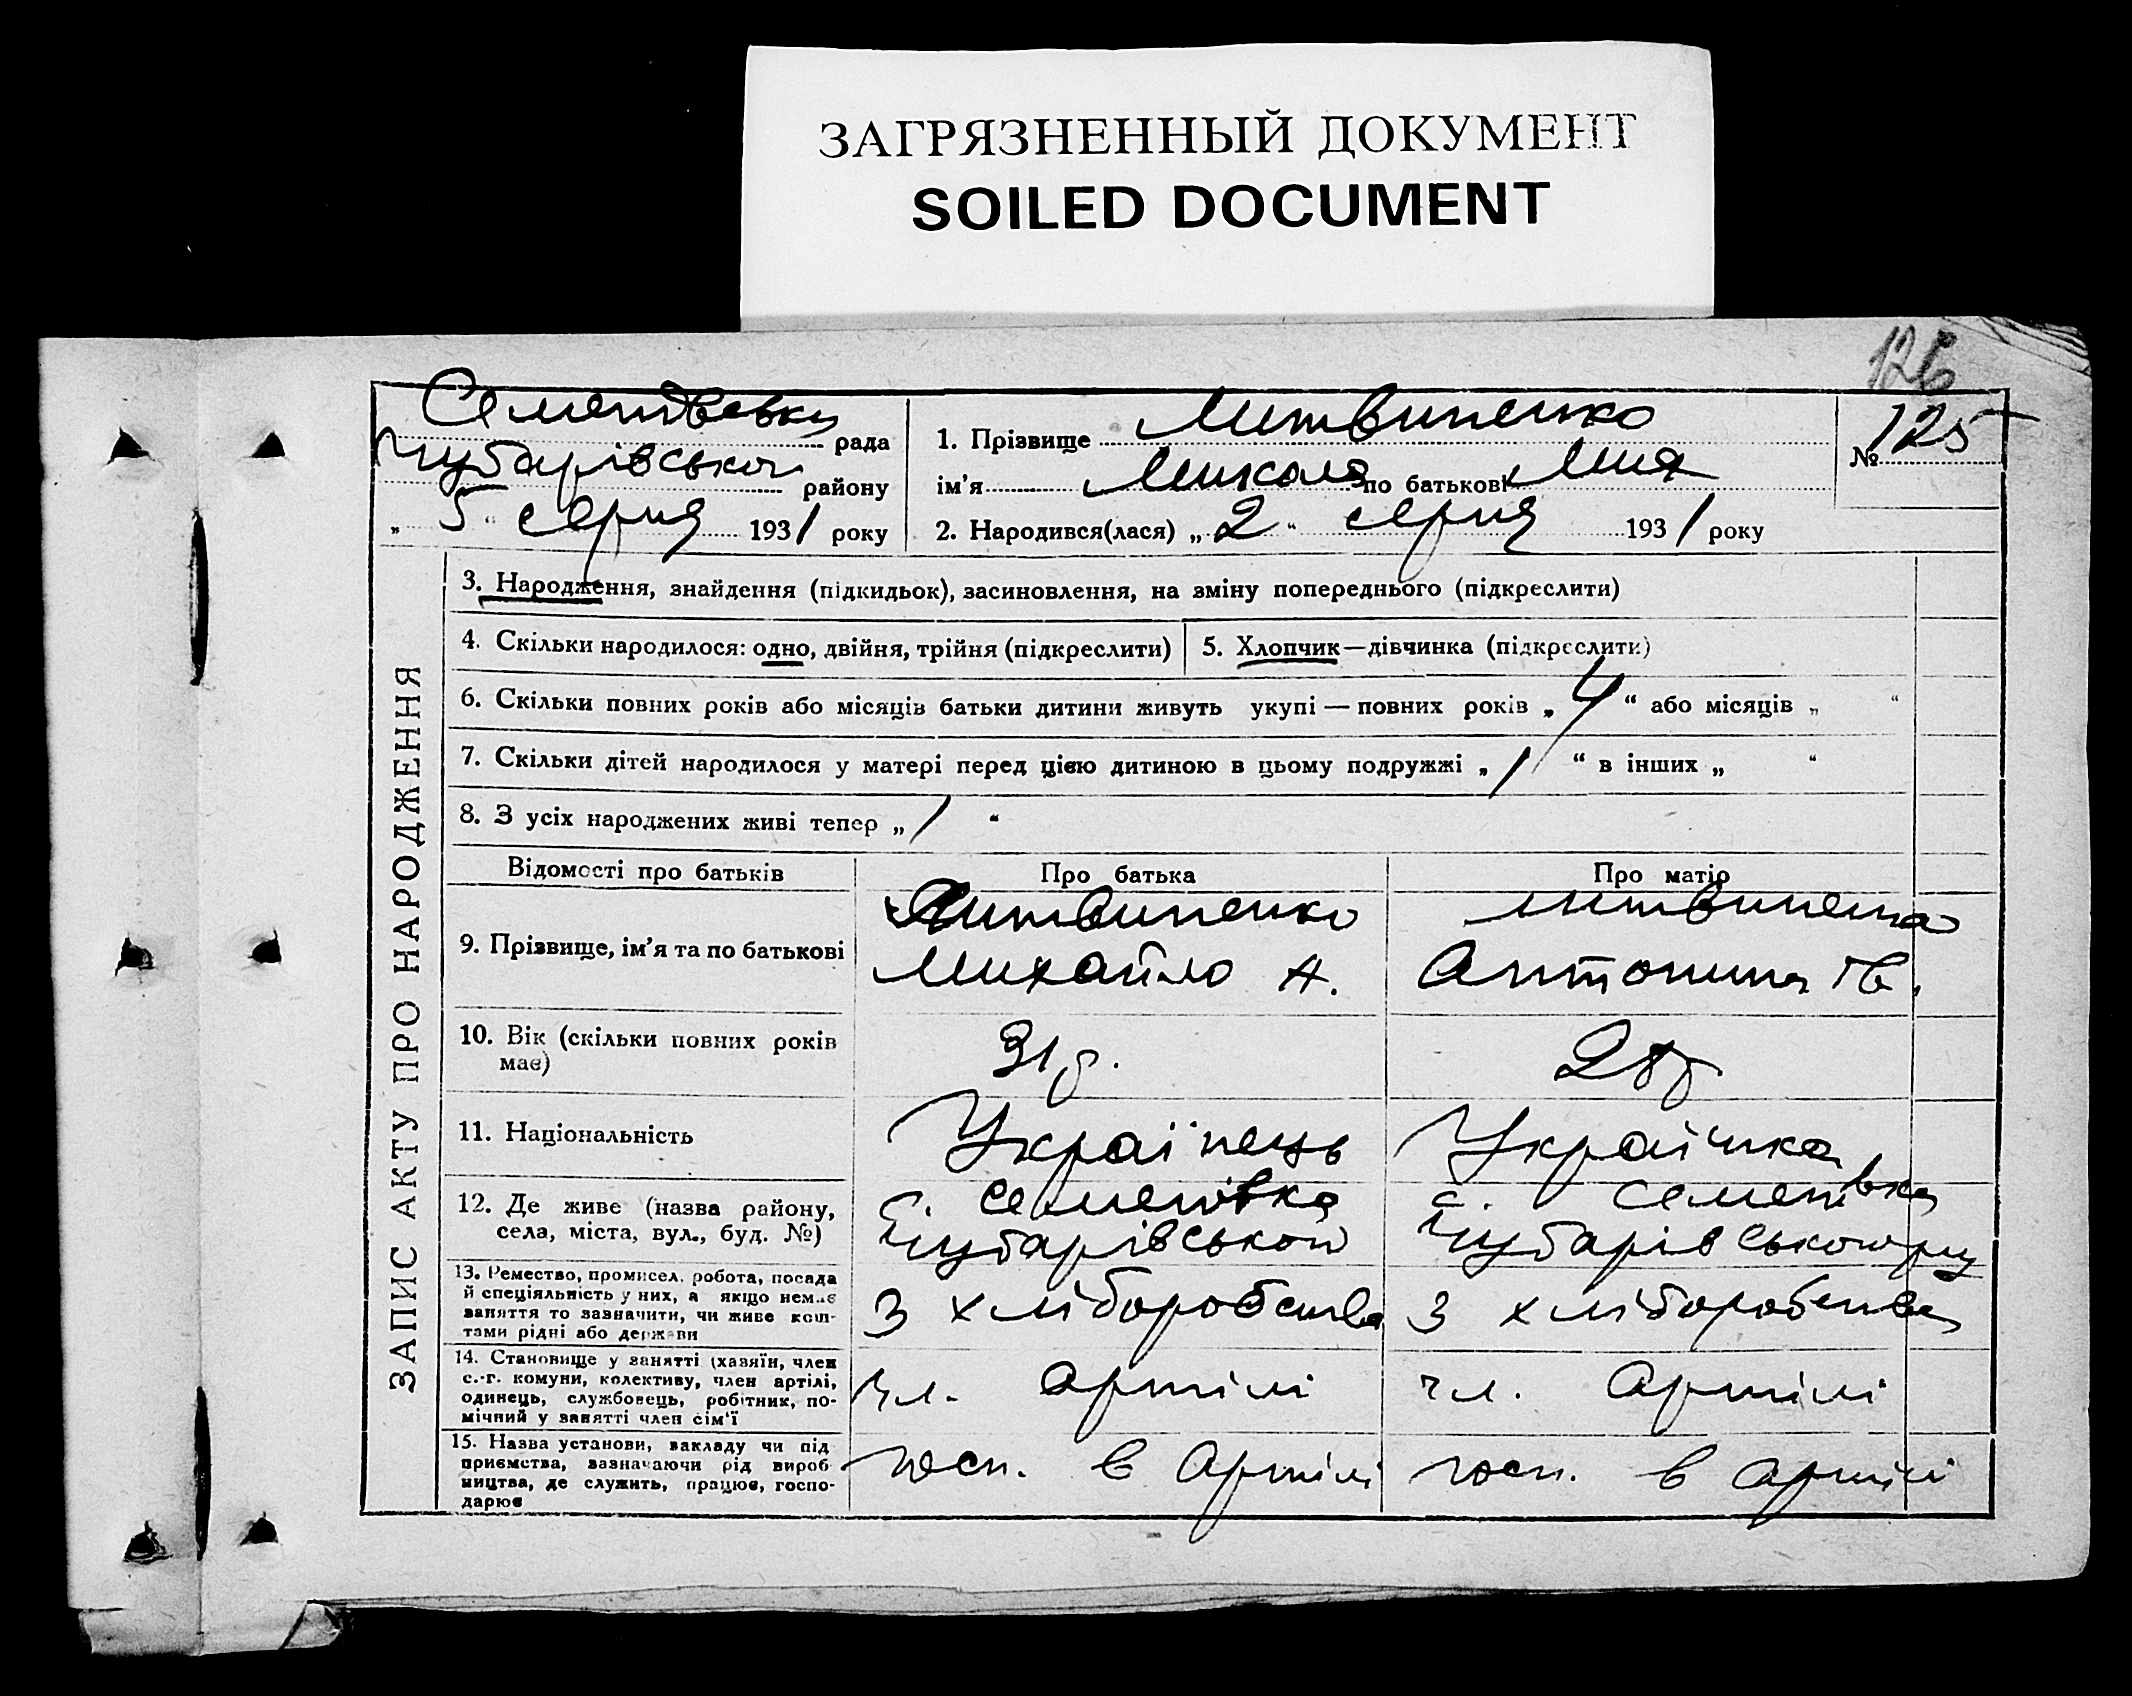 ЗАГРЯЗНЕННЫЙ ДОКУМЕНТ
SOILED DOCUMENT
126
Семенівська рада
Чубарівського району
„ 5 “ серпня 1931 року
1. Прізвище Литвиненко
ім'я Микола по батькові Мих
№ 125
2. Народився(лася) „ 2 “ серпня 1931 року
ЗАПИС АКТУ ПРО НАРОДЖЕННЯ
3. Народження, знайдення (підкидьок), засиновлення, на зміну попереднього (підкреслити)
4. Скільки народилося: одно, двійня, трійня (підкреслити)
5. Хлопчик—дівчинка (підкреслити)
6. Скільки повних років або місяців батьки дитини живуть укупі — повних років „ 4 “ або місяців „ “
7. Скільки дітей народилося у матері перед цією дитиною в цьому подружжі „ 1 “ в інших „ “
8. З усіх народжених живі тепер „ 1 “
Відомості про батьків
Про батька
Про матір
9. Прізвище, ім'я та по батькові
Литвиненко
Михайло А.
Литвиненко
Антонина Ів.
10. Вік (скільки повних років
має)
31 р.
28 р.
11. Національність
Українець
Українка
12. Де живе (назва району,
села, міста, вул., буд. №)
с. Семенівка
Чубарівського
с. Семенівка
Чубарівського р-ну
13. Ремество, промисел, робота, посада
й спеціяльність у них, а якщо немає
заняття то зазначити, чи живе кош-
тами рідні або держави
З хліборобства
З хліборобства
14. Становище у занятті (хазяїн, член
с.-г. комуни, колективу, член артілі,
одинець, службовець, робітник, по-
мічний у занятті член сім'ї
чл. артілі
чл. артілі
15. Назва установи, закладу чи під
приємства, зазначаючи рід вироб
ництва, де служить, працює, госпо-
дарює
госп. в артілі
госп. в артілі